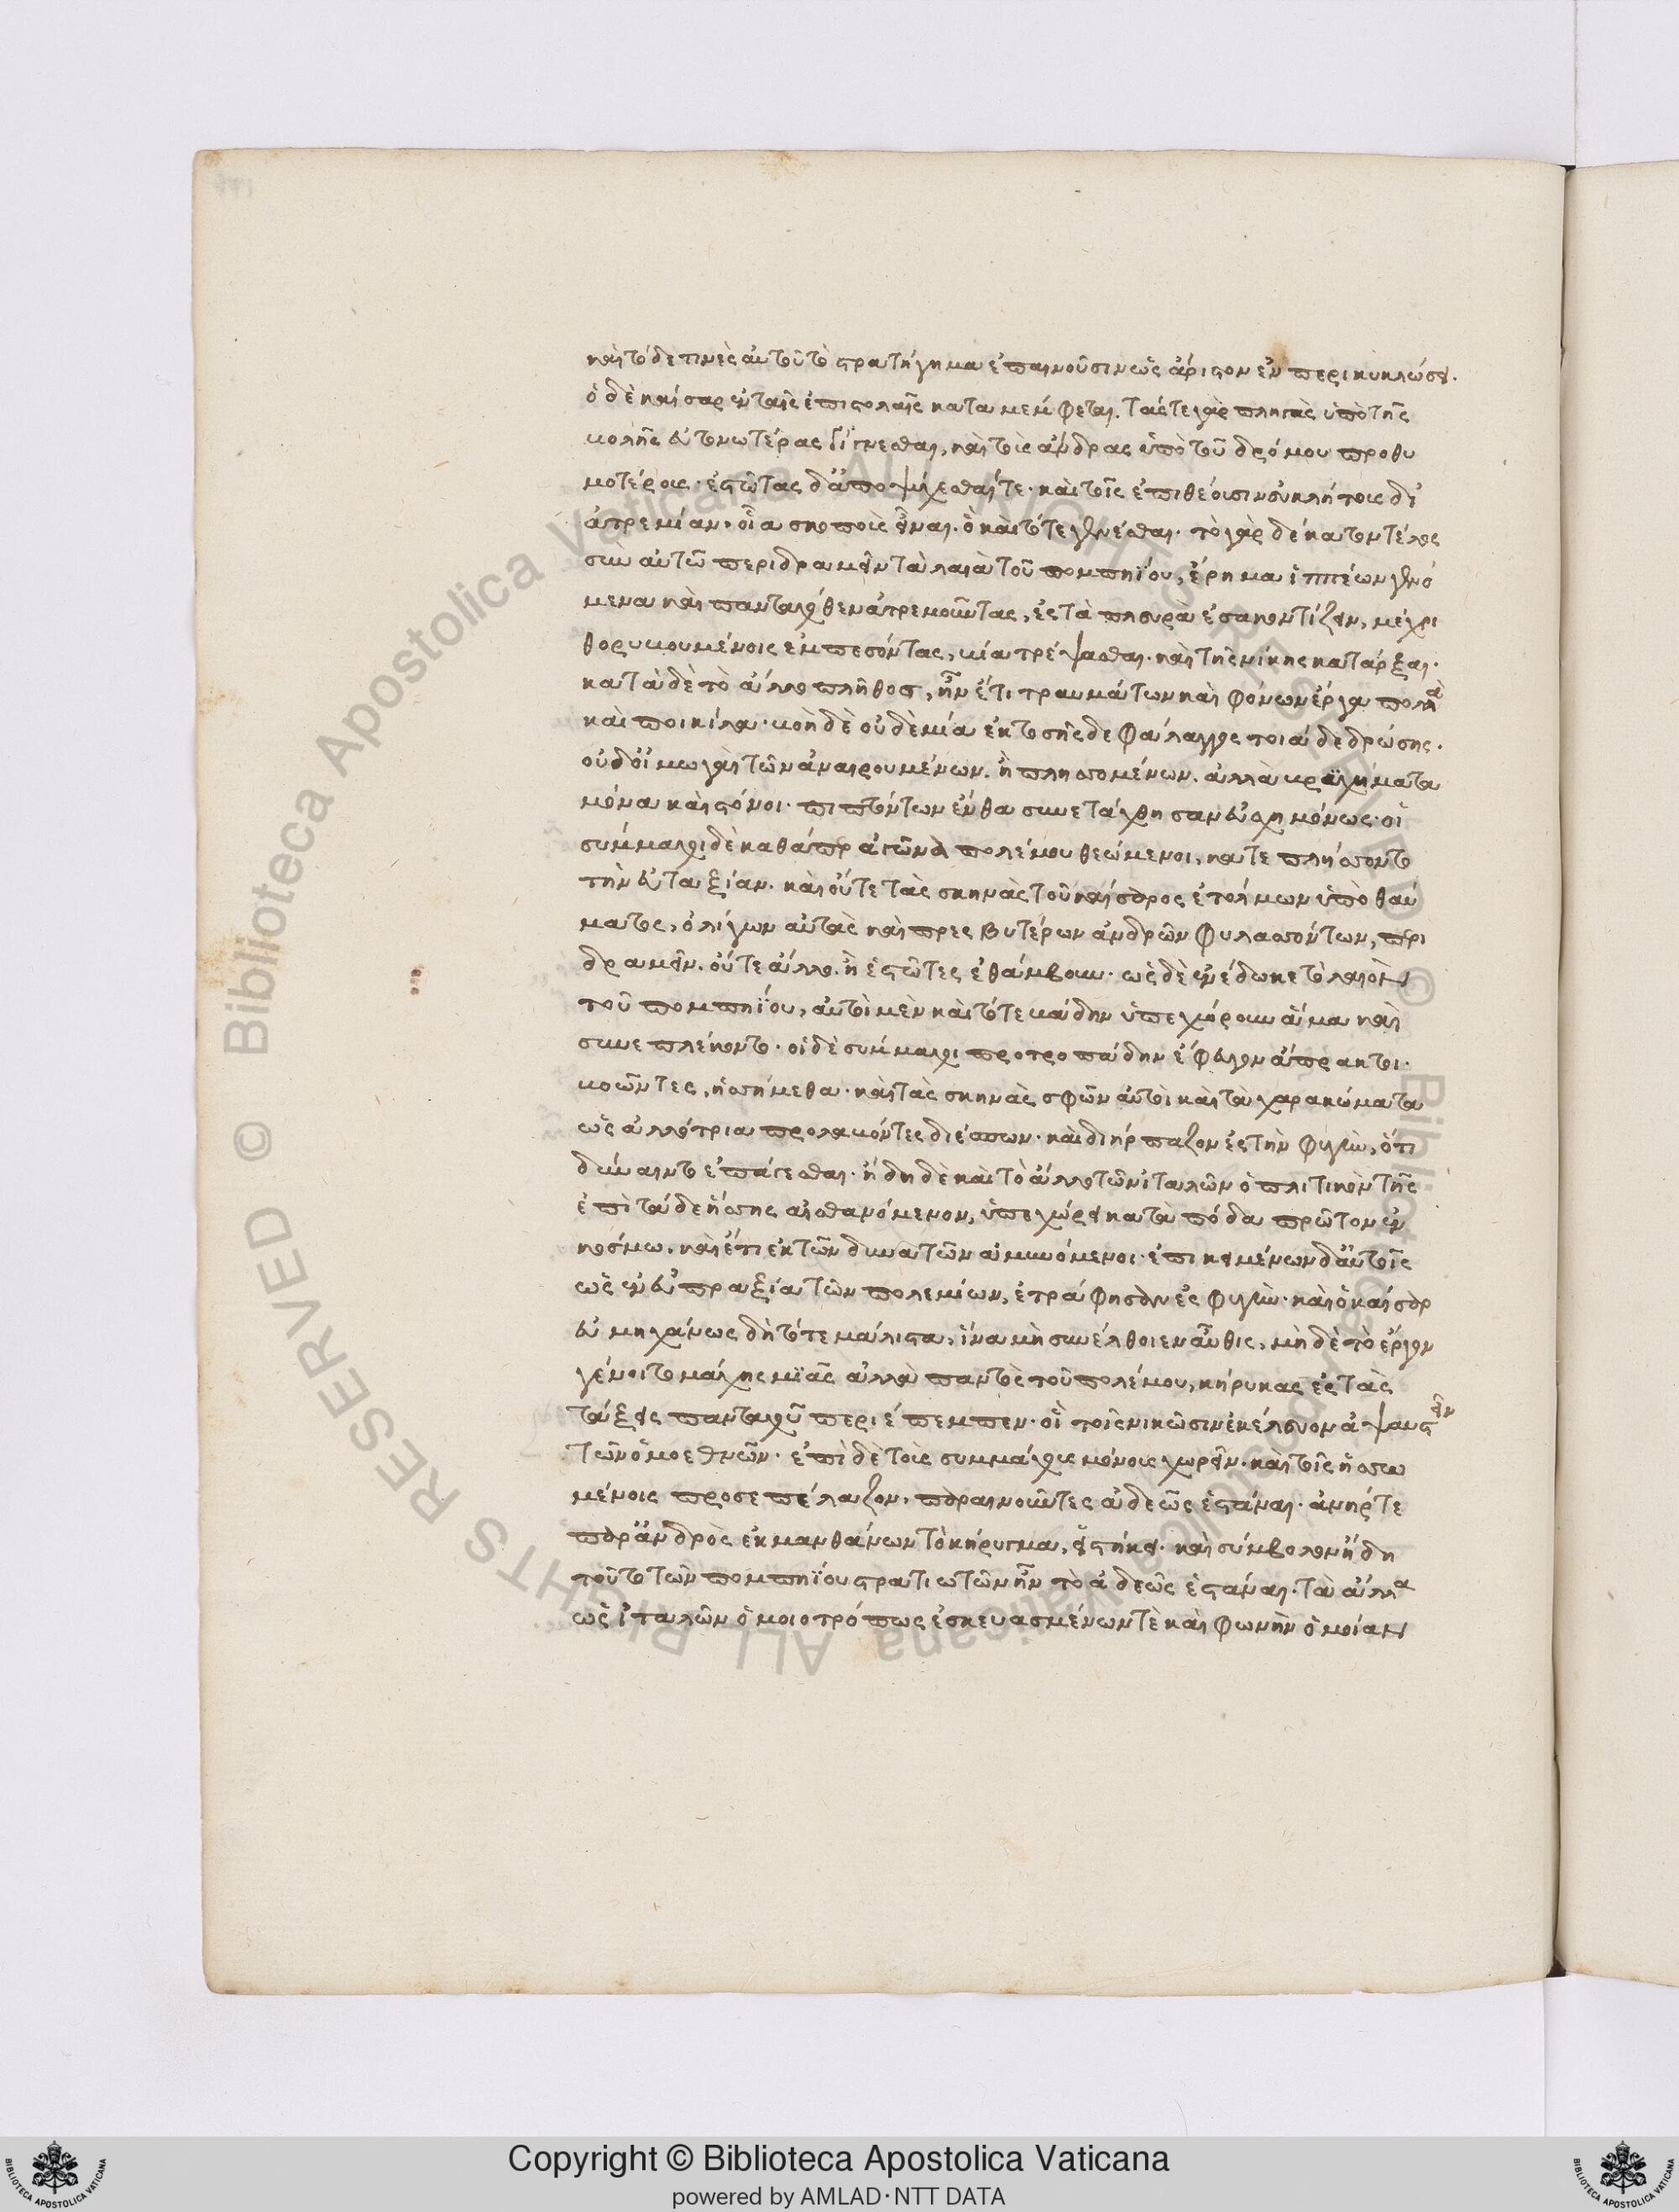 καὶ τόδε τινὲς αὐτοῦ τὸ στρατήγημα ἐπαινοῦσιν ὡς ἄριστον ἐν περικυκλώσει.
ὁ δὲ καίσαρ ἐν ταῖς ἐπιστολαῖς καταμέμφεται. τάς τε γὰρ πληγὰς ὑπὸ τῆς
βολῆς εὐτονωτέρας γίγνεσθαι, καὶ τοὺς ἄνδρας ὑπὸ τοῦ δρόμου προθυ
μοτέρους. ἑστῶτας δ' ἀποψύχεσθαί τε. καὶ τοῖς ἐπιθέουσιν εὐβλήτους δι'
ἀτρεμίαν. οἷα σκοποὺς εἶναι. ὃ καὶ τότε γενέσθαι. τὸ γὰρ δέκατον τέλος
σὺν αὐτῷ περιδραμεῖν τὰ λαιὰ τοῦ πομπηΐου, ἔρημα ἱππέων γενό
μενα καὶ πανταχόθεν ἀτρεμοῦντας, ἐς τὰ πλευρὰ ἐσακοντίζειν, μέχρι
θορυβουμένοις ἐμπεσόντας, βία τρέψασθαι. καὶ τῆς νίκης κατάρξαι.
κατὰ δὲ τὸ ἄλλο πλῆθος, ἦν ἔτι τραυμάτων καὶ φόνων ἔργα πολλὰ
καὶ ποικίλα. βοὴ δὲ οὐδὲ μία ἐκ τοσῆσδε φάλαγγος τοιάδε δρώσης.
οὐδ' οἰμωγαὶ τῶν ἀναιρουμένων. ἢ πλησσομένων. ἀλλὰ βραχήματα
μόνα καὶ στόνοι. πιπτόντων ἔνθα συνετάχθησαν εὐσχημόνως. οἱ
σύμμαχοι δὲ καθάπερ ἀγῶνα πολέμου θεώμενοι, κατεπλήσσοντο
τὴν εὐταξίαν. καὶ οὔτε τὰς σκηνὰς τοῦ καίσαρος ἐτόλμων ὑπὸ θαύ
ματος, ὀλίγων αὐτὰς καὶ πρεσβυτέρων ἀνδρῶν φυλασσόντων, περι
δραμεῖν. οὔτε ἄλλο. ἢ ἑστῶτες ἐθάμβουν. ὡς δὲ ἐνέδωκε τὸ λαιὸν
τοῦ πομπηΐου, αὐτοὶ μὲν καὶ τότε βάδην ὑπεχώρουν ἅμα καὶ
συνεπλέκοντο. οἱ δὲ σύμμαχοι προτροπάδην ἔφευγον ἄπρακτοι.
βοῶντες, ἡσσήμεθα. καὶ τὰς σκηνὰς σφῶν αὐτοὶ καὶ τὰ χαρακώματα
ὡς ἀλλότρια προλαβόντες διέσπων. καὶ διήρπαζον ἐς τὴν φυγὴν, ὅτι
δύναιντο ἐπάγεσθαι. ἤδη δὲ καὶ τὸ ἄλλο τῶν ἰταλῶν ὁπλιτικὸν τῆς
ἐπὶ τάδε ἥσσης αἰσθανόμενον, ὑπεχώρει κατὰ πόδα πρῶτον ἐν
κόσμω. καὶ ἔτι ἐκ τῶν δυνατῶν ἀμυνόμενοι. ἐπικειμένων δ' αὐτοῖς
ὡς ἐν εὐπραξία τῶν πολεμίων, ἐτράφησαν ἐς φυγὴν. καὶ ὁ καίσαρ
εὐμηχάνως δὴ τότε μάλιστα, ἵνα μὴ συνέλθοιεν αὖθις, μὴ δὲ τὸ ἔργον
γένοιτο μάχης μϊᾶς ἀλλὰ παντὸς τοῦ πολέμου, κήρυκας ἐς τὰς
τάξεις πανταχοῦ περιέπεμπεν. οἳ τοῖς νικῶσιν ἐκέλευον ἀψαυστεῖν
τῶν ὁμοεθνῶν. ἐπὶ δὲ τοὺς συμμάχους μόνους χωρεῖν. καὶ τοῖς ἡσσω
μένοις προσεπέλαζον, παραινοῦντες ἀδεῶς ἑστάναι. ἀνὴρ τε
παρ' ἀνδρὸς ἐκμανθάνων τὸ κήρυγμα, εἱστήκει. καὶ σύμβολον ἤδη
τοῦτο τῶν πομπηΐου στρατιωτῶν ἦν τὸ ἀδεῶς ἑστάναι. τὰ ἄλλα
ὡς ἰταλῶν ὁμοιοτρόπως ἐσκευασμένων τὲ καὶ φωνὴν ὁμοίαν
© Biblioteca Apostolica Vaticana ALL RIGHTS RESERVED
© Biblioteca Apostolica Vaticana ALL RIGHTS RESERVED
Copyright © Biblioteca Apostolica Vaticana
powered by AMLAD·NTT DATA
BIBLIOTECA APOSTOLICA VATICANA
BIBLIOTECA APOSTOLICA VATICANA